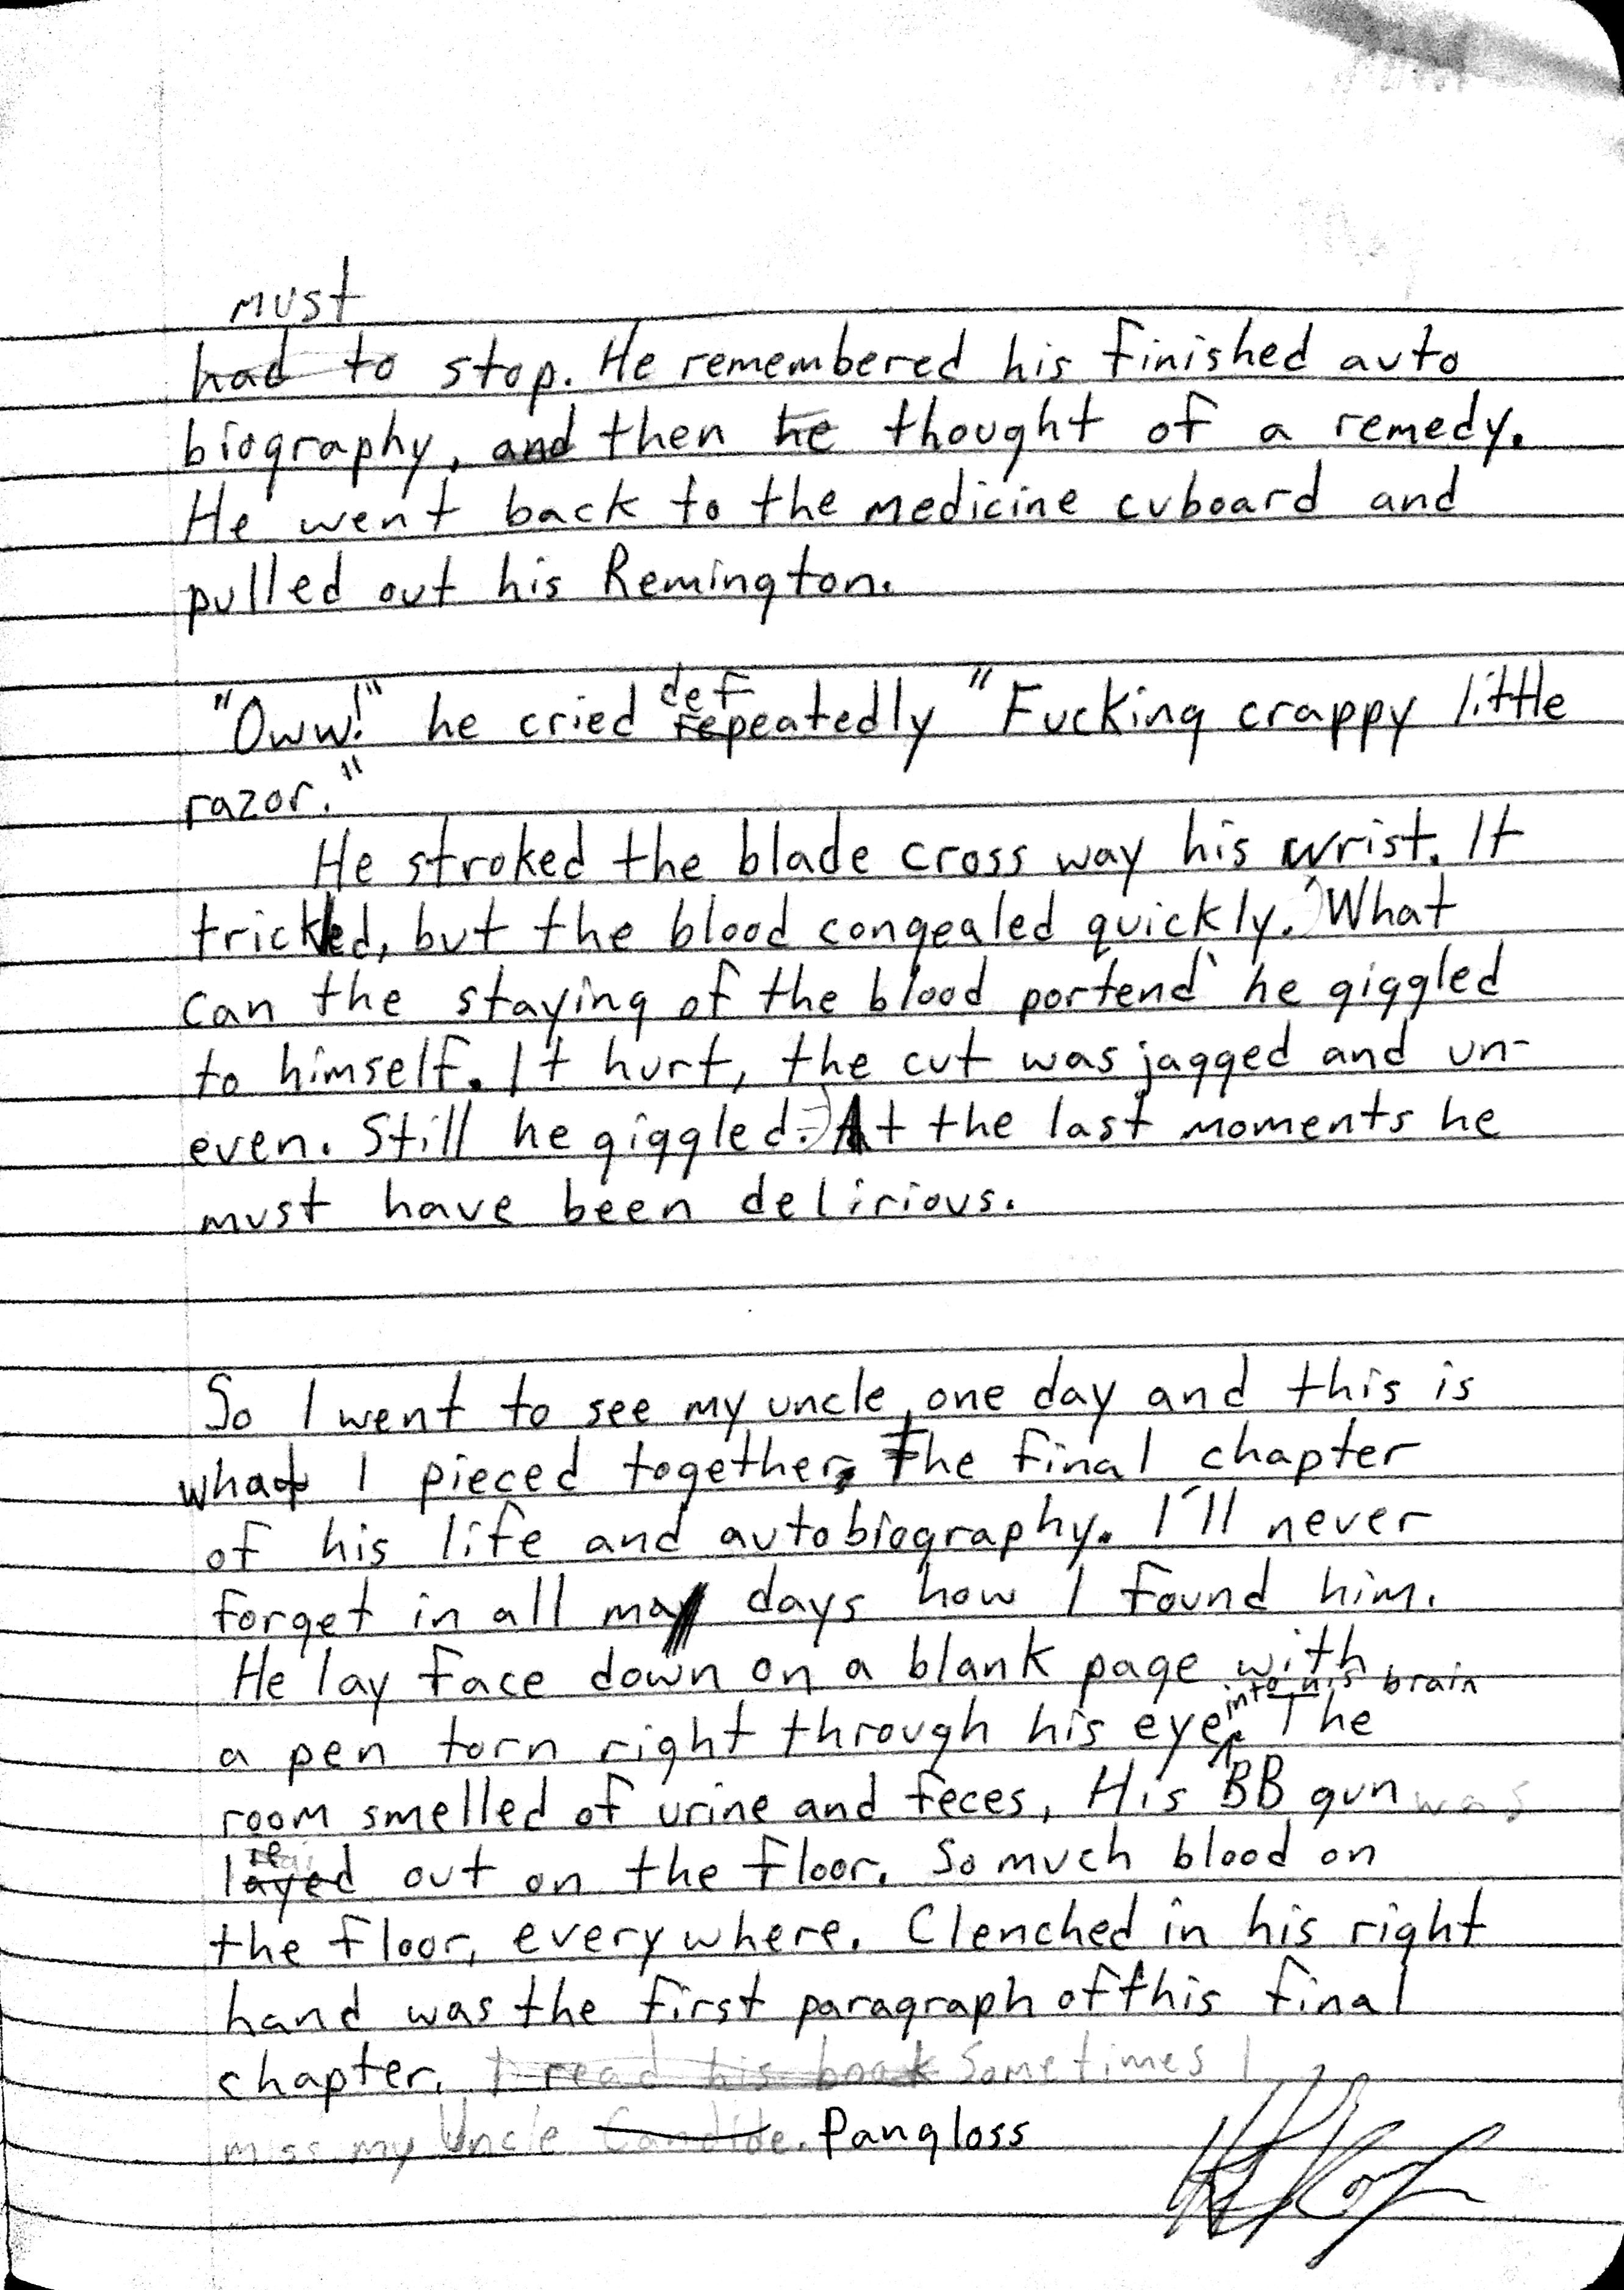 must
had to stop. He remembered his finished auto
biography, and then he thought of a remedy.
He went back to the medicine cuboard and
pulled out his Remington.
def
"Oww!" he cried repeatedly "Fucking crappy little
razor."
He stroked the blade cross way his wrist. It
trickled, but the blood congealed quickly. 'What
can the staying of the blood portend' he giggled
to himself. It hurt, the cut was jagged and un-
even. Still he giggled. At the last moments he
must have been delirious.
So I went to see my uncle, one day and this is
what I pieced together, The final chapter
of his life and autobiography. I'll never
forget in all my days how I found him.
He lay face down on a blank page with
into his brain
a pen torn right through his eye. The
room smelled of urine and feces, His BB gun was
layed out on the floor. So much blood on
the floor, everywhere. Clenched in his right
hand was the first paragraph of this final
chapter. I read his book Sometimes I
miss my Uncle Candide. Pangloss